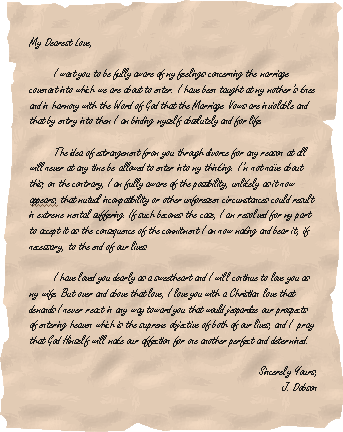 My Dearest Love,
I want you to be fully aware of my feelings concerning the marriage
covenant into which we are about to enter. I have been taught at my mother's knee
and in harmony with the Word of God that the Marriage Vows are inviolable and
that by entry into them I am binding myself absolutely and for life.
The idea of estrangement from you through divorce for any reason at all
will never at any time be allowed to enter into my thinking. I'm not naive about
this; on the contrary, I am fully aware of the possibility, unlikely as it now
appears, that mutual incompatibility or other unforeseen circumstances could result
in extreme mental suffering. If such becomes the case, I am resolved for my part
to accept it as the consequence of the commitment I am now making and bear it, if
necessary, to the end of our lives.
I have loved you dearly as a sweetheart and I will continue to love you as
my wife. But over and above that love, I love you with a Christian love that
demands I never react in any way toward you that would jeopardize our prospects
of entering heaven which is the supreme objective of both of our lives, and I pray
that God Himself will make our affection for one another perfect and determined.
Sincerely Yours,
J. Dobson